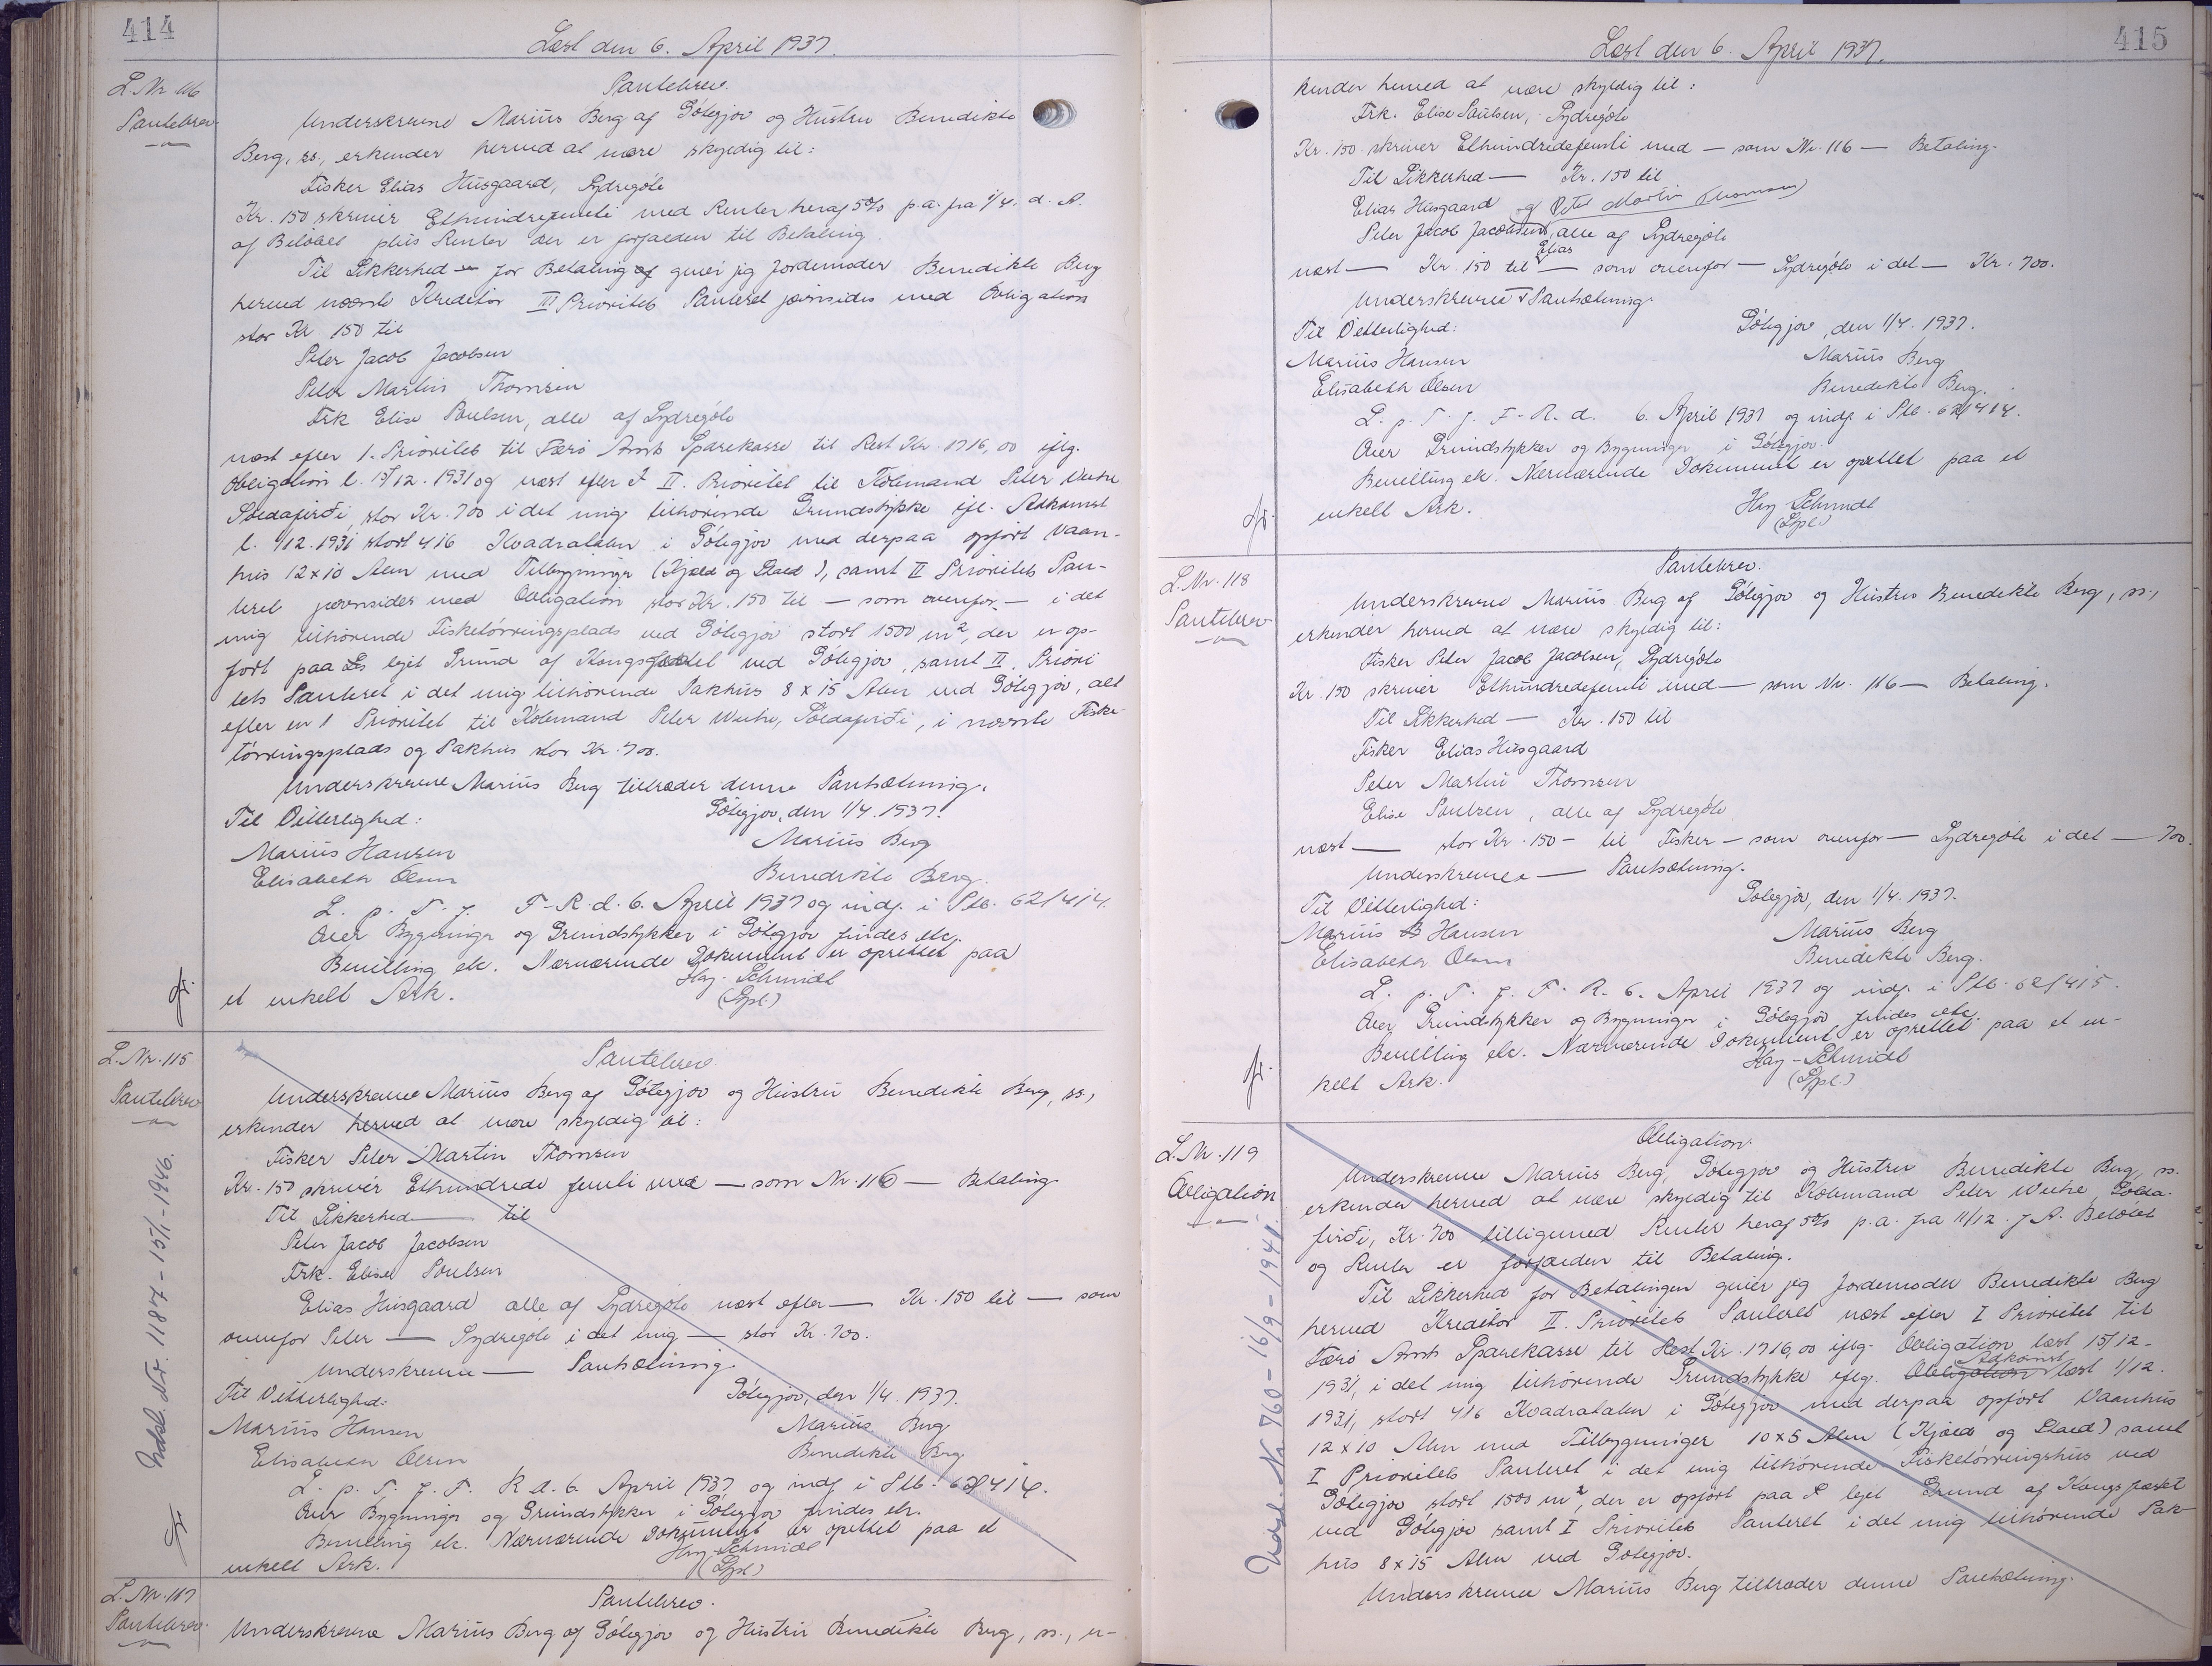 414
Læst den 6. April 1937.
L. Nr. 116
Pantebrev
Pantebrev.
Underskrevne Marius Berg af Gótegjov og Hustru Benedikte
Berg, ss., erkender herved at være skyldig til:
Fisker Elias Husgaard, Sydregöte
Kr. 150 skriver Ethundredefemti med Renter heraf 5% p.a. fra 1/4. d. A.
af Beløbet plus Renter der er forfalden til Betaling.
Til Sikkerhed for Betaling af giver jeg Jordemoder Benedikte Berg
herved nævnte Kreditor III Prioritets Panteret jævnsides med Obligation
stor Kr. 150 til
Peter Jacob Jacobsen
Peter Martin Thomsen
Frk Elise Poulsen, alle af Sydregöte
næst efter 1. Prioritet til Færø Amts Sparekasse til Rest Kr. 1716,00 iflg.
Obligation l. 15/12. 1931 og næst efter I II. Prioritet til Købmand Peter Weihe
Söldafirði, stor Kr. 700 i det mig tilhörende Grundstykke ifl. Adkomst
l. 1/12. 1931 stort 416 Kvadratalen i Gótegjov med derpaa opført Vaan-
hus 12 x 10 Alen med Tilbygninger (Kjæld og Stald), samt II Prioritets Pan-
teret jævnsides med Obligation stor Kr. 150 til — som ovenfor. — i det
mig tilhørende Fisketörringsplads ved Gótegjov stort 1500 m², der er op-
ført paa lejet Grund af Kongsfæstet ved Gótegjov, samt II. Priori
tets Panteret i det mig tilhørende Pakhus 8 x 15 Alen ved Gótegjov, alt
efter en 1 Prioritet til Købmand Peter Weihe, Söldafirði, i nævnte Fiske-
törringsplads og Pakhus stor Kr. 700.
Underskrevne Marius Berg tiltræder denne Pantsætning.
Til Vitterlighed: Gótegjov, den 1/4. 1937.
Marius Hansen Marius Berg
Elisabeth Olsen Benedikte Berg.
L. p. T. f. F. R. d. 6. April 1937 og indf. i Ptb. 62/414.
Over Bygninger og Grundstykker i Gótegjov findes etc.
Bevilling etc. Nærværende Dokument er oprettet paa
et enkelt Ark. Hay-Schmidt
(Gpl.)
L. Nr. 115
Pantebrev
Indsl. Nr. 1187 - 15/1 - 1946.
Pantebrev.
Underskrevne Marius Berg af Gótegjov og Hustru Benedikte Berg, ss.,
erkender herved at være skyldig til:
Fisker Peter Martin Thomsen
Kr. 150 skriver Ethundrede femti med — som Nr. 116 — Betaling
Til Sikkerhed — til
Peter Jacob Jacobsen
Frk. Elise Poulsen
Elias Husgaard alle af Sydregöte næst efter — Kr. 150 til — som
ovenfor Peter — Sydregöte i det mig — stor Kr. 700.
Underskrevne — Pantsætning
Til Vitterlighed: Gótegjov, den 1/4. 1937.
Marius Hansen Marius Berg
Elisabeth Olsen Benedikte Berg
L. p. T. f. F. R. d. 6. April 1937 og indf i Ptb. 62/414.
Over Bygninger og Grundstykker i Gótegjov findes etc.
Bevilling etc. Nærværende Dokument er oprettet paa et
enkelt Ark. Hay-Schmidt
(Gpl)
L. Nr. 117
Pantebrev.
Pantebrev.
Underskrevne Marius Berg af Gótegjov og Hustru Benedikte Berg, ss., er-
415
Læst den 6. April 1937.
kender herved at være skyldig til:
Frk. Elise Poulsen, Sydregöte
Kr. 150 skriver Ethundredefemti med — som Nr. 116 — Betaling.
Til Sikkerhed — Kr. 150 til
Elias Husgaard og Peter Martin Thomsen
Peter Jacob Jacobsen, alle af Sydregöte
næst — Kr. 150 til Elias — som ovenfor — Sydregöte i det — Kr. 700.
Underskrevne — Pantsætning.
Til Vitterlighed: Gótegjov, den 1/4. 1937.
Marius Hansen Marius Berg
Elisabeth Olsen Benedikte Berg.
L. p. T. f. F. R. d. 6. April 1937 og indf. i Ptb. 62/414.
Over Grundstykker og Bygninger i Gótegjov.
Bevilling etc. Nærværende Dokument er oprettet paa et
enkelt Ark. Hay-Schmidt
(Gpl.)
L. Nr. 118
Pantebrev
Pantebrev.
Underskrevne Marius Berg af Gótegjov og Hustru Benedikte Berg, ss.,
erkender herved at være skyldig til:
Fisker Peter Jacob Jacobsen, Sydregöte
Kr. 150 skriver Ethundredefemti med — som Nr. 116 — Betaling.
Til Sikkerhed — Kr. 150 til
Fisker Elias Husgaard
Peter Martin Thomsen
Elise Poulsen, alle af Sydregöte
næst — stor Kr. 150 — til Fisker — som ovenfor — Sydregöte i det — 700.
Underskrevne — Pantsætning.
Til Vitterlighed: Gótegjov, den 1/4. 1937.
Marius Hansen Marius Berg
Elisabeth Olsen Benedikte Berg.
L. p. T. f. F. R. 6. April 1937 og indf. i Ptb. 62/415.
Over Grundstykker og Bygninger i Gótegjov findes etc.
Bevilling etc. Nærværende Dokument er oprettet paa et en-
kelt Ark. Hay-Schmidt
(Gpl.)
L. Nr. 119
Obligation
Indsl. Nr 760 - 16/9 - 1941.
Obligation.
Underskrevne Marius Berg, Gótegjov og Hustru Benedikte Berg, ss.
erkender herved at være skyldig til Købmand Peter Weihe, Sölda-
firði, Kr. 700 tilligemed Renter heraf 5% p.a. fra 11/12. f. A. Beløbet
og Renter er forfalden til Betaling.
Til Sikkerhed for Betalingen giver jeg Jordemoder Benedikte Berg
herved Kreditor II. Prioritets Panteret næst efter I Prioritet til
Færø Amts Sparekasse til Rest Kr. 1716,00 iflg. Obligation læst 15/12-
1931, i det mig tilhørende Grundstykke iflg. Obligation Adkomst læst 1/12.
1931, stort 416 Kvadratalen i Gótegjov med derpaa opført Vaanhus
12 x 10 Alen med Tilbygninger 10 x 5 Alen (Kjæld og Stald) samt
I Prioritets Panteret i det mig tilhørende Fisketörringshus ved
Gótegjov stort 1500 m², der er opført paa lejet Grund af Kongsfæstet
ved Gótegjov samt I Prioritets Panteret i det mig tilhørende Pak-
hus 8 x 15 Alen ved Gótegjov.
Underskrevne Marius Berg tiltræder denne Pantsætning.